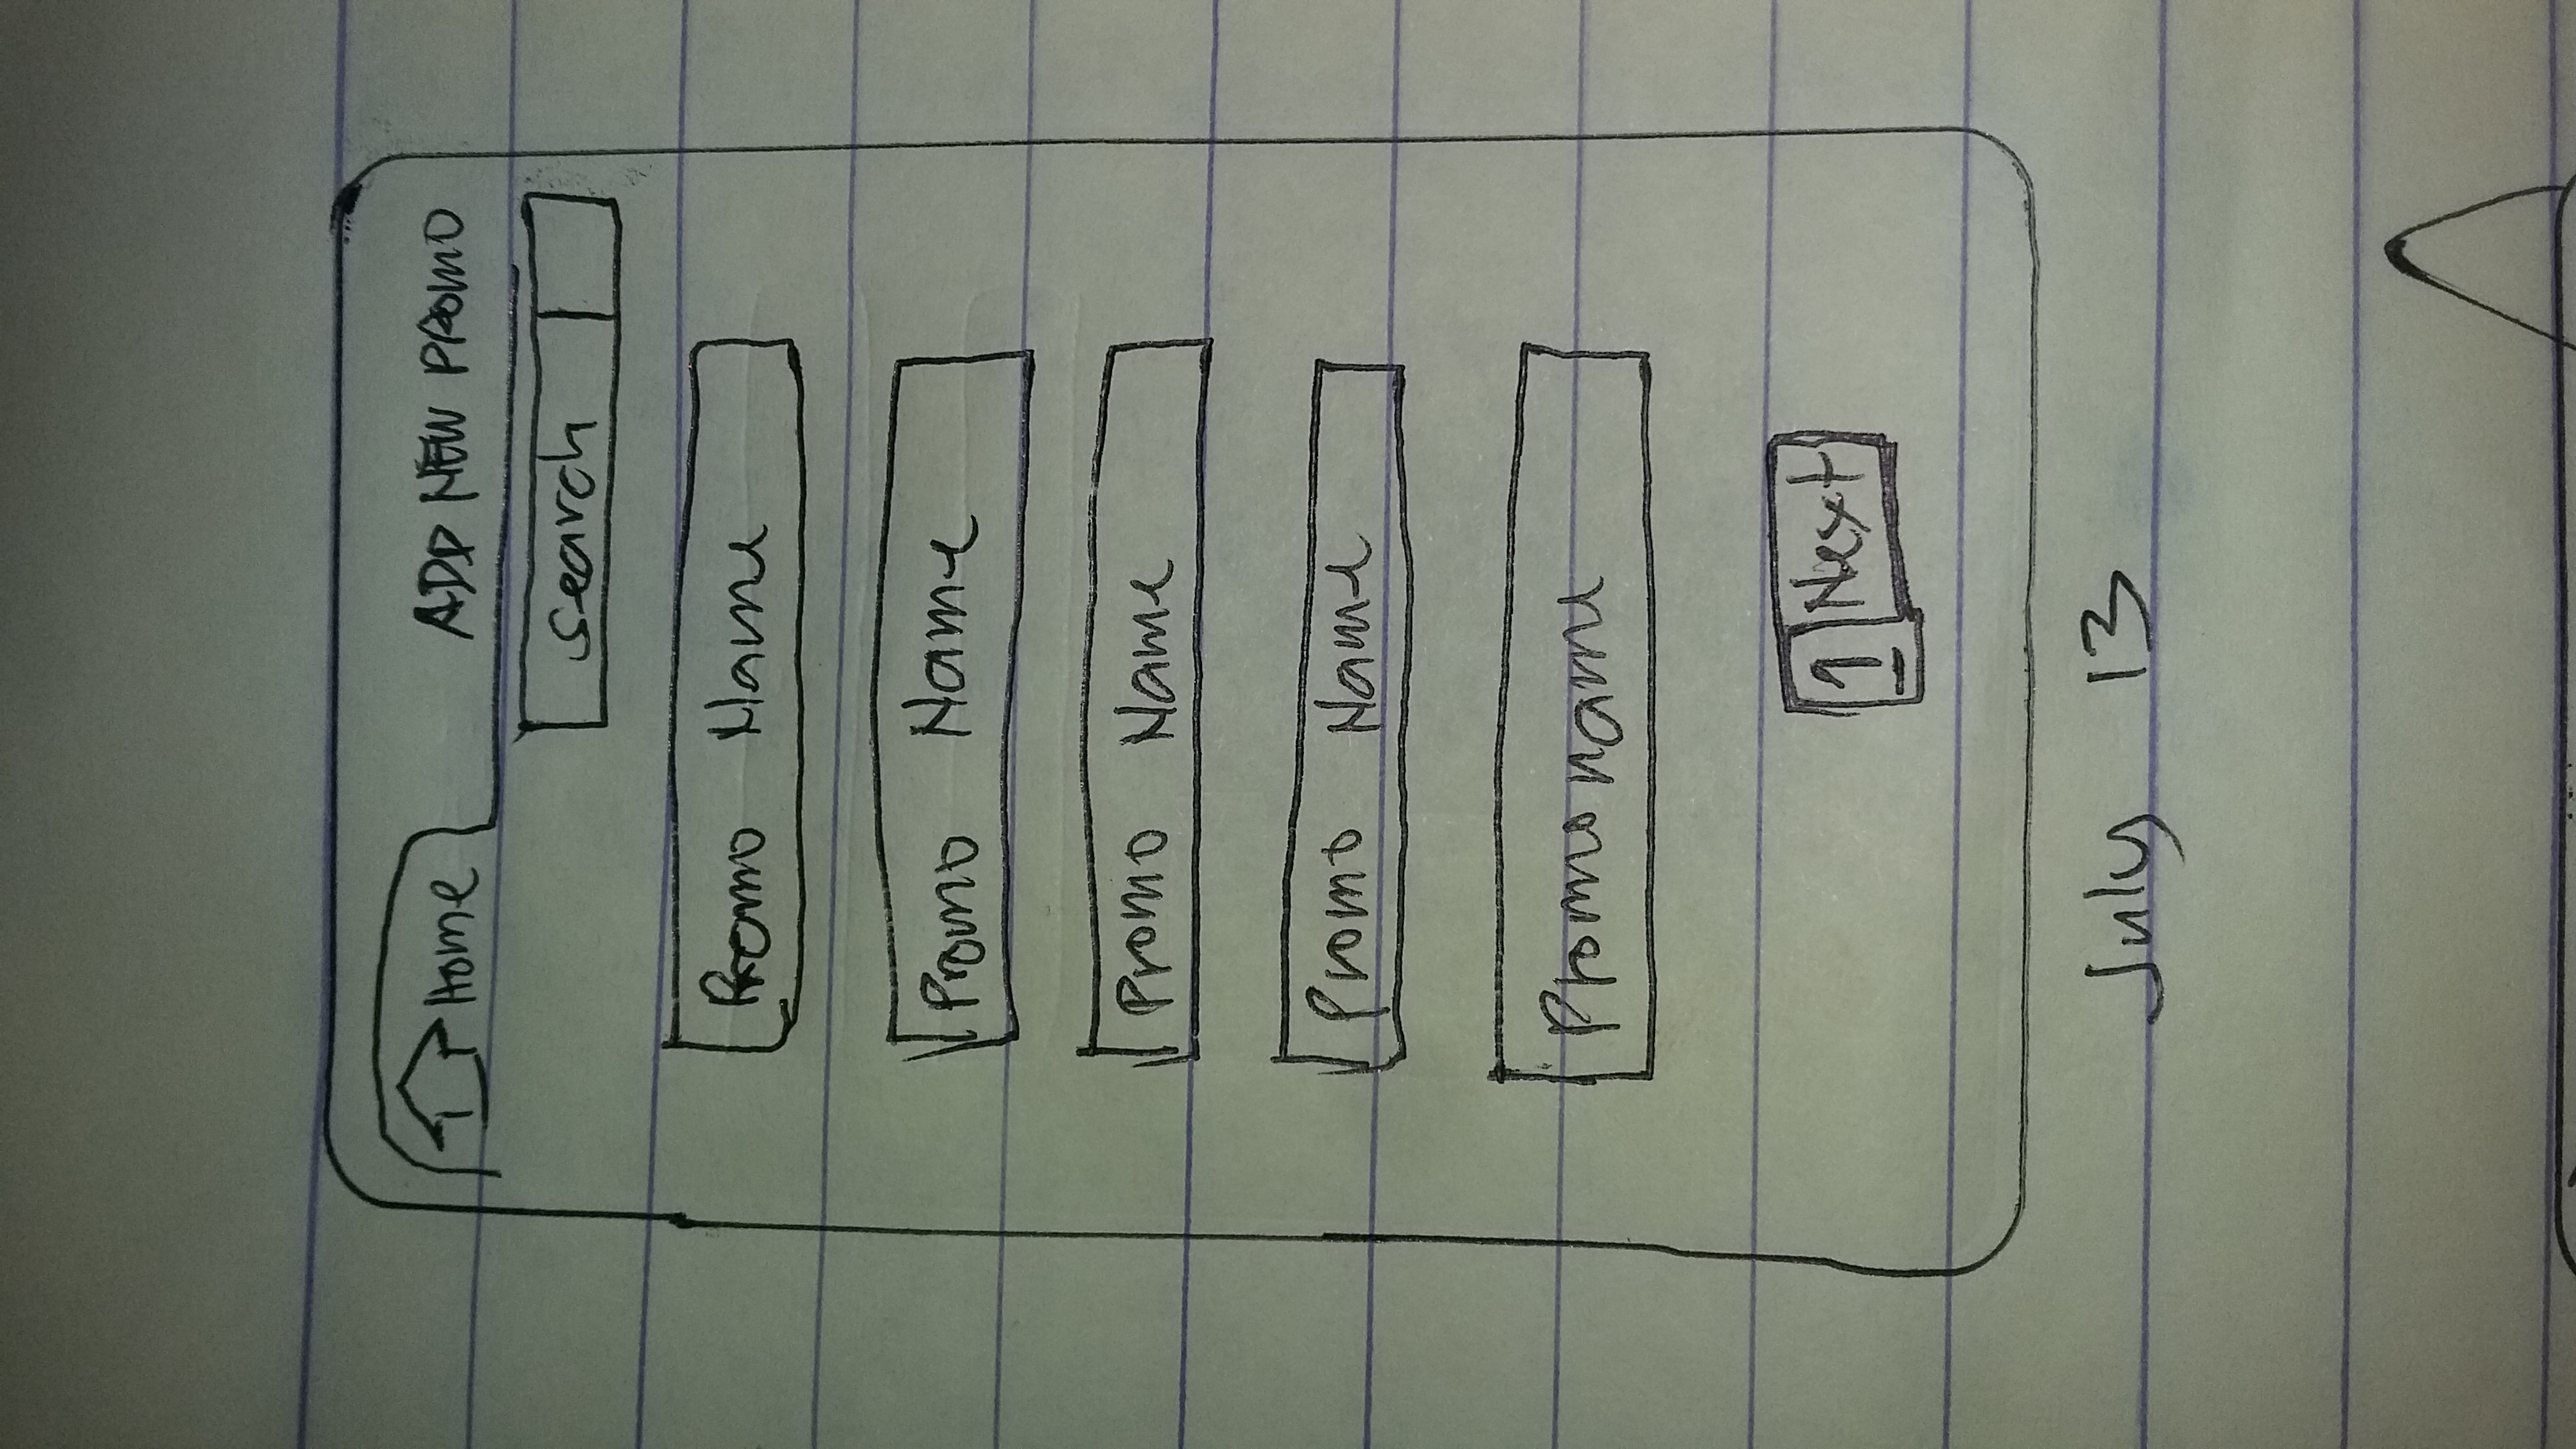 Home ADD NEW PROMO
search
Promo Name
Promo Name
Promo Name
Promo Name
Promo name
1 Next
July 13